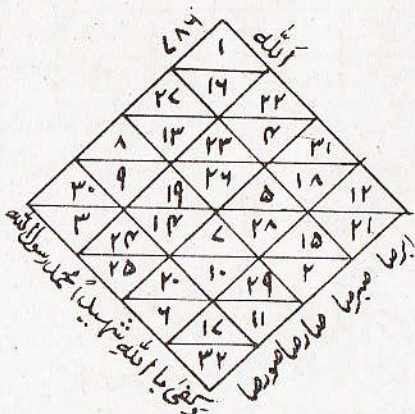 ۷۸۶ اللہ
۱
۲۷ ۱۶ ۲۲
۸ ۱۳ ۲۳ ۴ ۳۱
۳۰ ۹ ۱۹ ۲۶ ۵ ۱۸ ۱۲
۳ ۲۴ ۱۴ ۷ ۲۸ ۱۵ ۲۱
۲۵ ۲۰ ۱۰ ۲۹ ۲
۶ ۱۷ ۱۱
۳۲
وکفیٰ باللہ شہیداً محمد رسول اللہ
ابرصا صبرصا صارصا صورصا